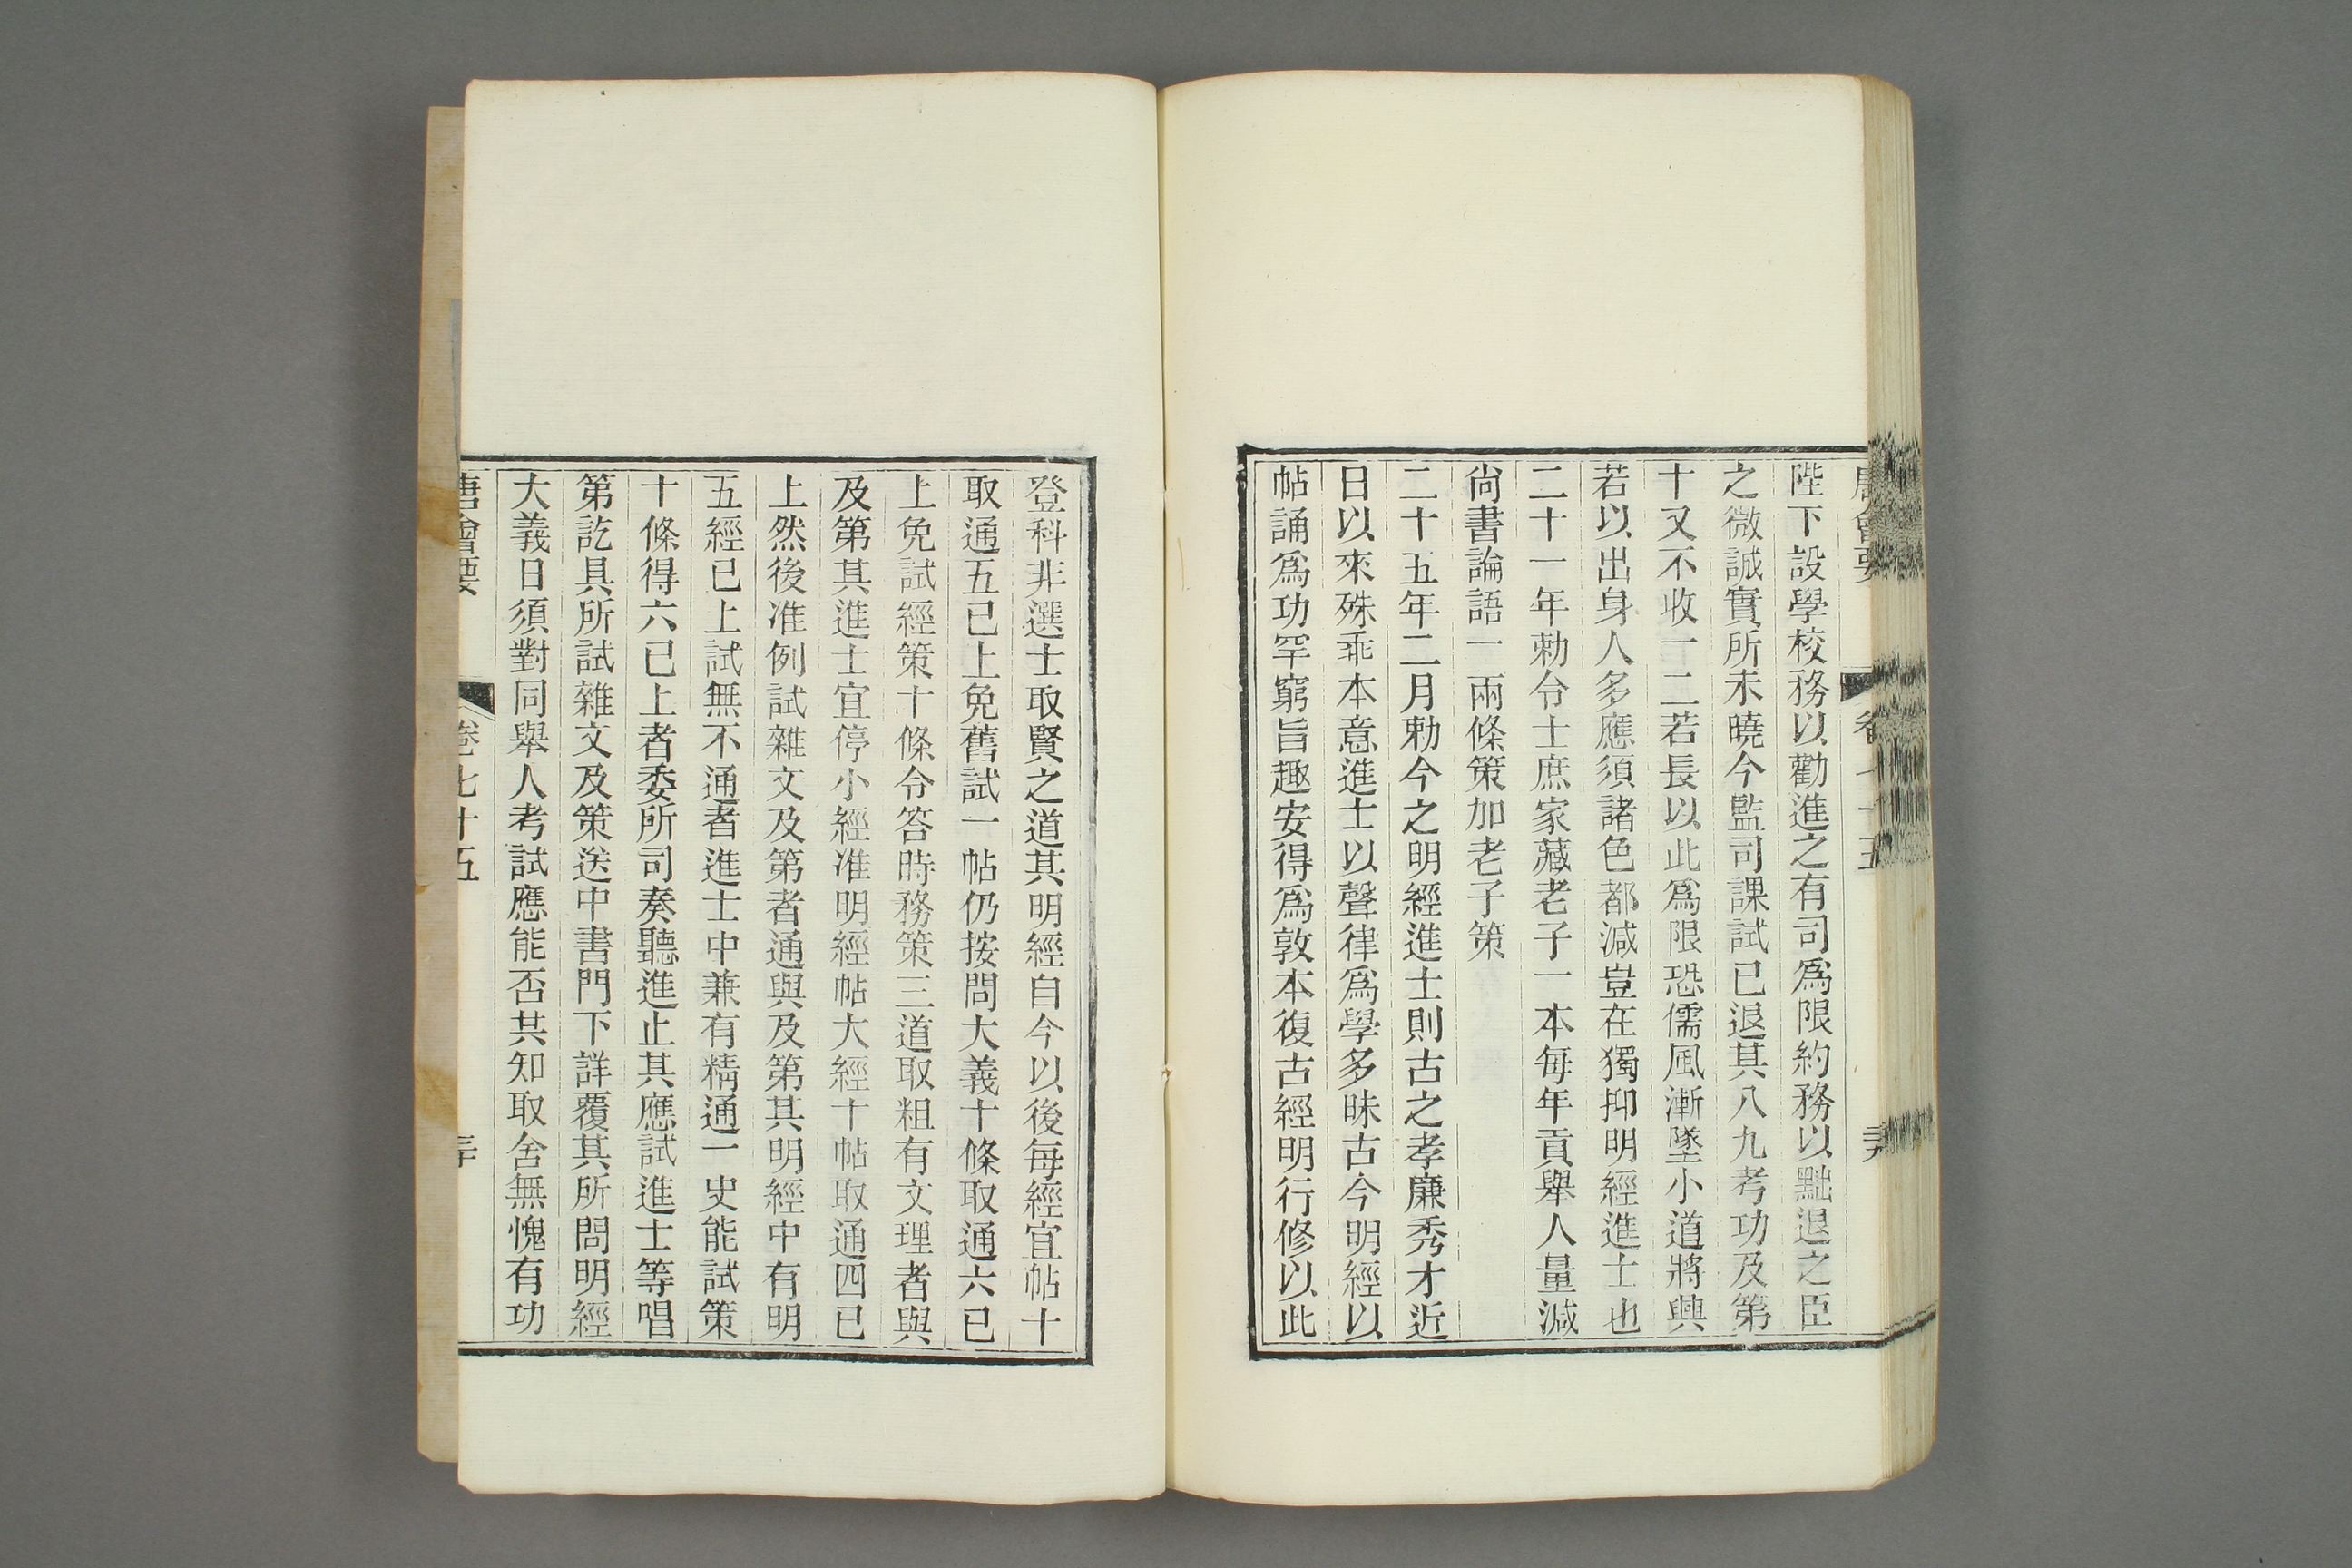 陛下設學校務以勸進之有司爲限約務以黜退之臣
之微誠實所未曉今監司課試已退其八九考功及第
十又不收一二若長以此爲限恐儒風漸墜小道將興
若以出身人多應須諸色都減豈在獨抑明經進士也
二十一年勅令士庶家藏老子一本每年貢舉人量減
尙書論語一兩條策加老子策
二十五年二月勅今之明經進士則古之孝廉秀才近
日以來殊乖本意進士以聲律爲學多昧古今明經以
帖誦爲功罕窮旨趣安得爲敦本復古經明行修以此
登科非選士取賢之道其明經自今以後每經宜帖十
取通五已上免舊試一帖仍按問大義十條取通六已
上免試經策十條令答時務策三道取粗有文理者與
及第其進士宜停小經准明經帖大經十帖取通四已
上然後准例試雜文及第者通與及第其明經中有明
五經已上試無不通者進士中兼有精通一史能試策
十條得六已上者委所司奏聽進止其應試進士等唱
第訖具所試雜文及策送中書門下詳覆其所問明經
大義日須對同舉人考試應能否共知取舍無愧有功
唐會要 卷七十五 三十